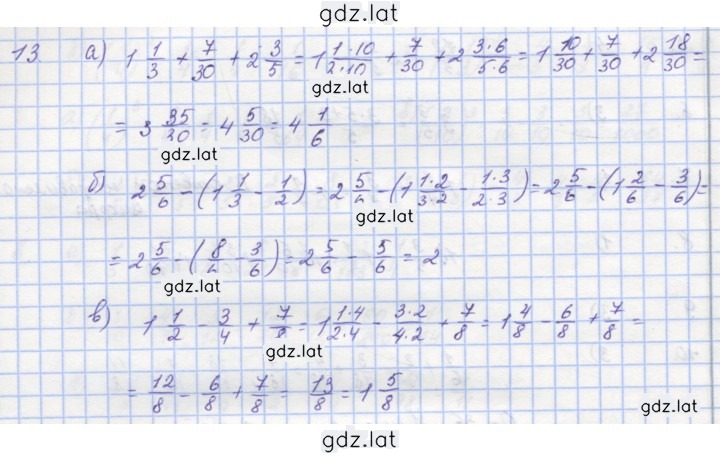 gdz.lat
13 а) 1 1/3 + 7/30 + 2 3/5 = 1 1·10/2·10 + 7/30 + 2 3·6/5·6 = 1 10/30 + 7/30 + 2 18/30 =
gdz.lat
= 3 35/30 = 4 5/30 = 4 1/6
gdz.lat
б) 2 5/6 - (1 1/3 - 1/2) = 2 5/6 - (1 1·2/3·2 - 1·3/2·3) = 2 5/6 - (1 2/6 - 3/6) =
gdz.lat
= 2 5/6 - (8/6 - 3/6) = 2 5/6 - 5/6 = 2
gdz.lat
в) 1 1/2 - 3/4 + 7/8 = 1 1·4/2·4 - 3·2/4·2 + 7/8 = 1 4/8 - 6/8 + 7/8 =
gdz.lat
= 12/8 - 6/8 + 7/8 = 13/8 = 1 5/8
gdz.lat
gdz.lat